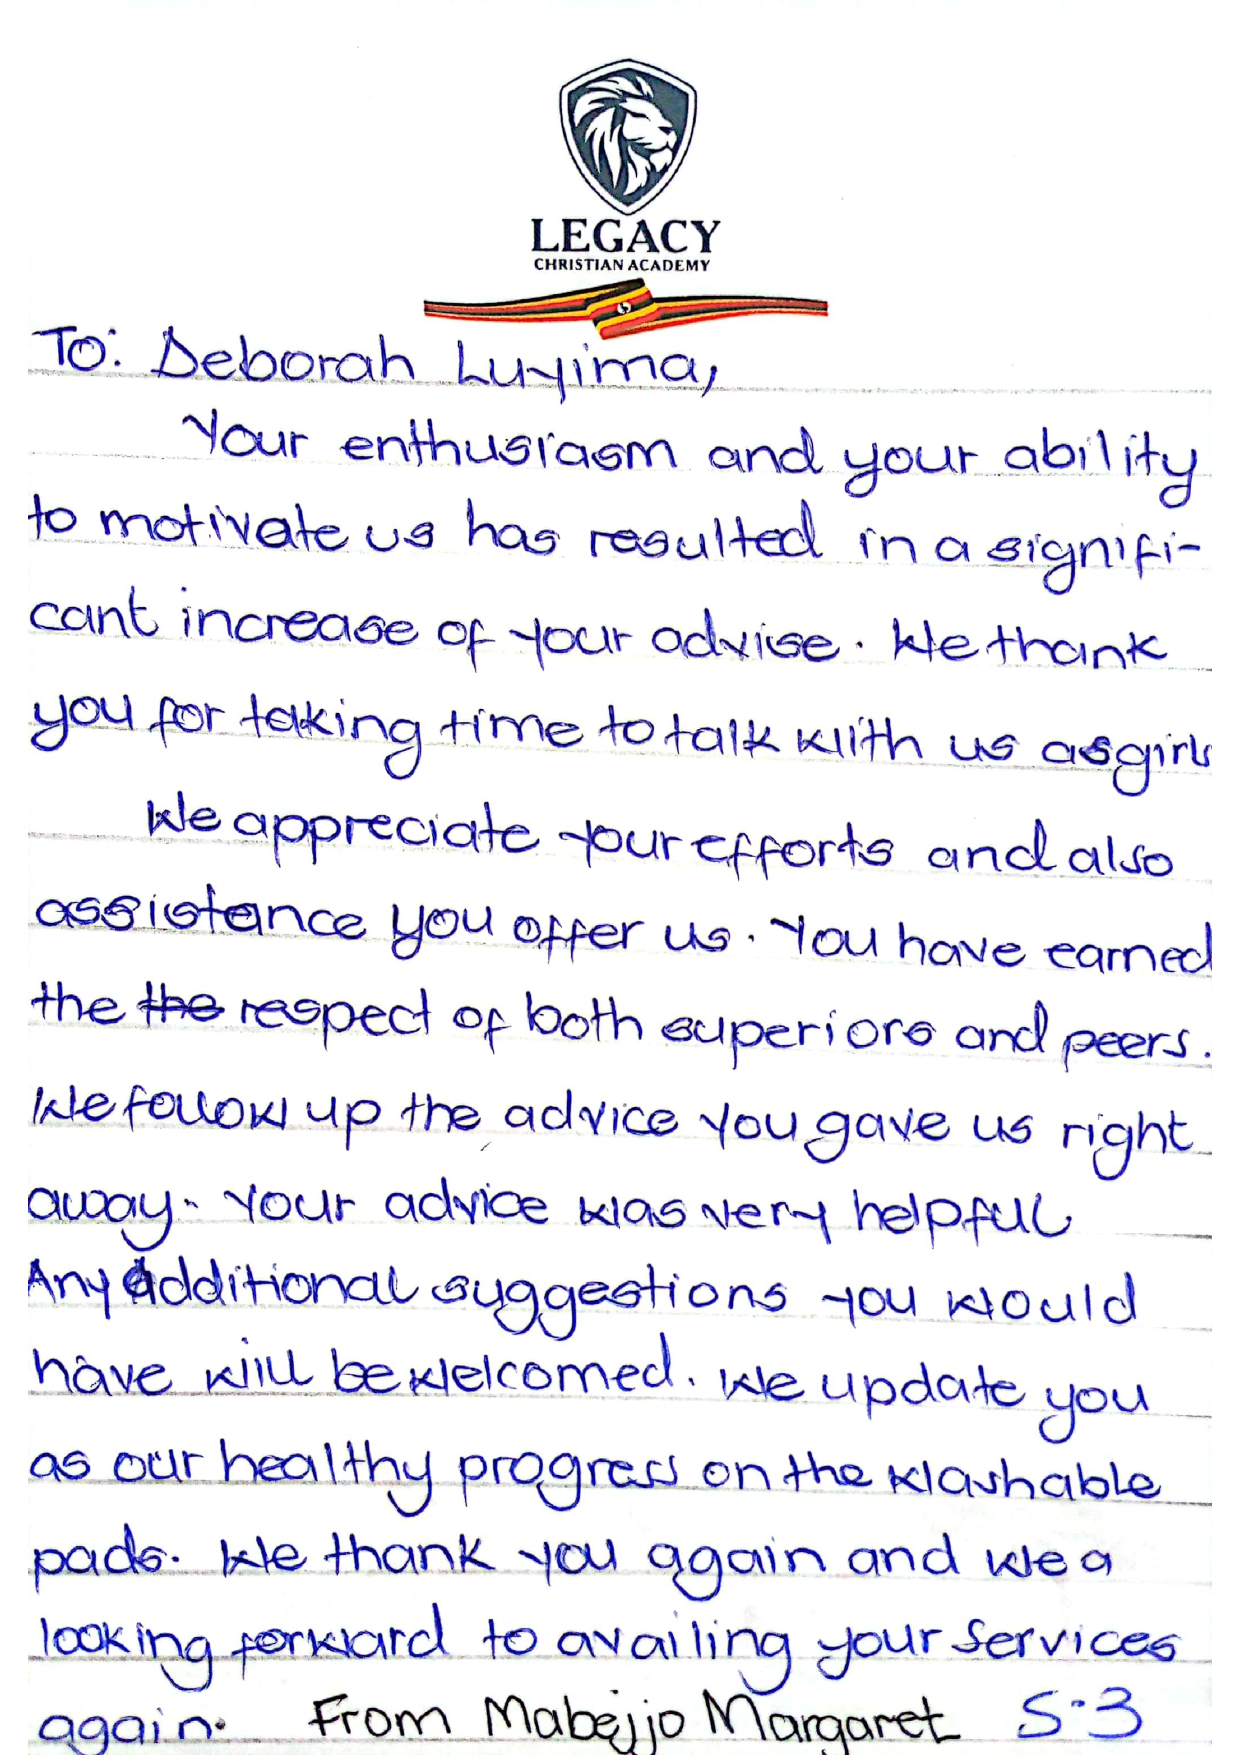 LEGACY
CHRISTIAN ACADEMY
To: Deborah Luyima,
Your enthusiasm and your ability
to motivate us has resulted in a signifi-
cant increase of your advise. We thank
you for taking time to talk with us as girls
We appreciate your efforts and also
assistance you offer us. You have earned
the the respect of both superiors and peers.
We follow up the advice you gave us right
away. Your advice was very helpful
Any additional suggestions you would
have will be welcomed. We update you
as our healthy progress on the washable
pads. We thank you again and we a
looking forward to availing your services
again. From Mabejjo Margaret S.3